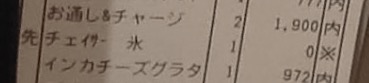 777内
お通し&チャージ 2 1,900内
先 チェイサー 氷 1 0※
インカチーズグラタ 1 972内